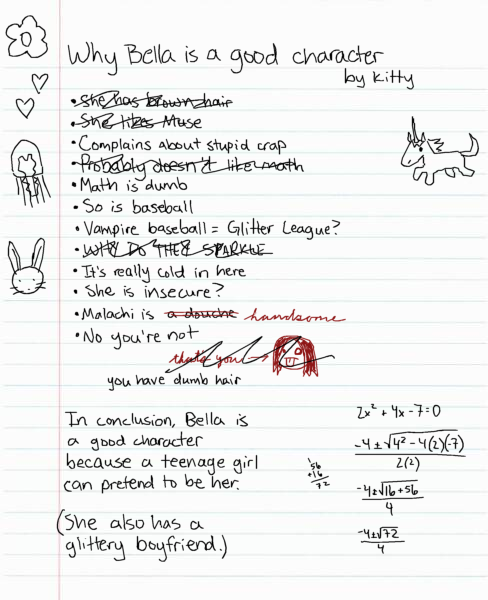 Why Bella is a good character
by Kitty
• She has brown hair
• She likes Muse
• Complains about stupid crap
• Probably doesn't like math
• Math is dumb
• So is baseball
• Vampire baseball = Glitter League?
• WHY DO THEY SPARKLE
• It's really cold in here
• She is insecure?
• Malachi is a douche handsome
• No you're not
that's you
you have dumb hair
In conclusion, Bella is
a good character
because a teenage girl
can pretend to be her.
(She also has a
glittery boyfriend.)
2x² + 4x - 7 = 0
-4 ± √4² - 4(2)(-7)
2(2)
1
56
+16
72
-4 ± √16 + 56
4
-4 ± √72
4